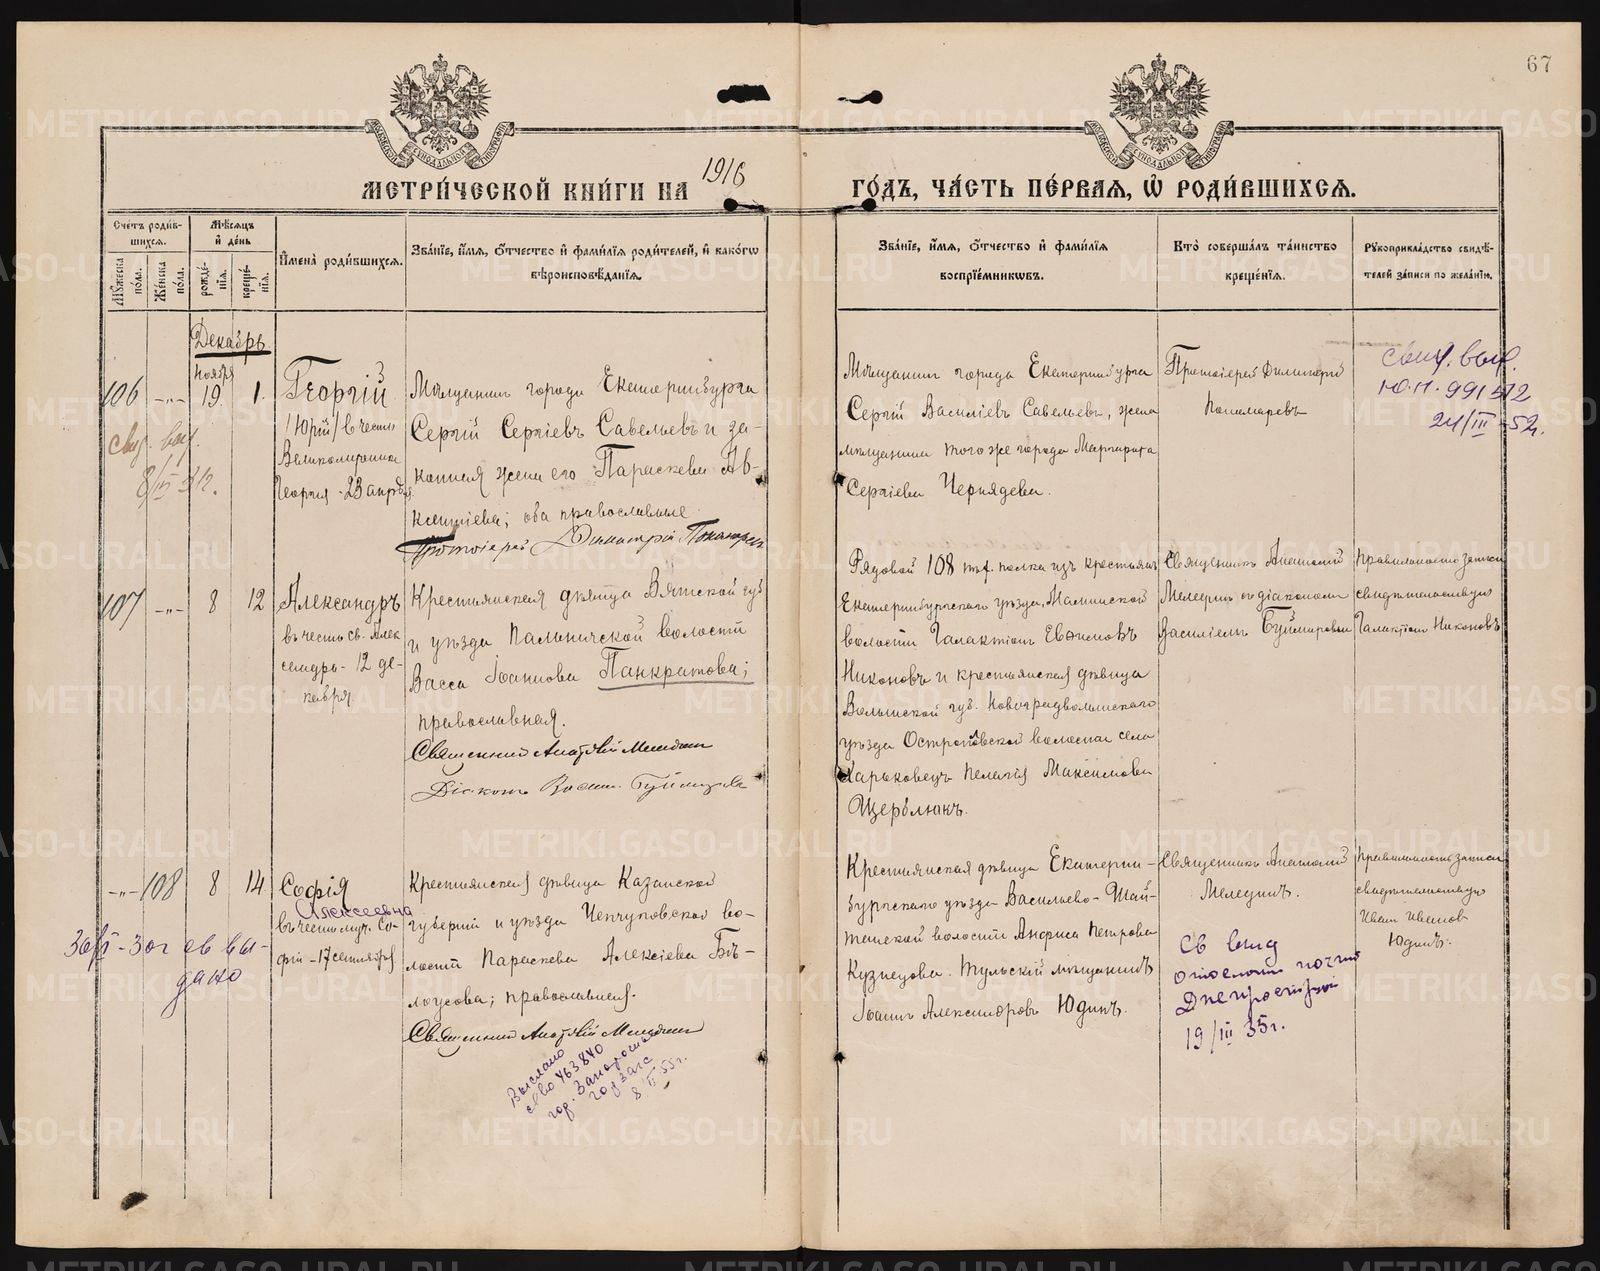 67
МЕТРИ́ЧЕСКОЙ КНИ́ГИ НА 1916 ГО́ДЪ, ЧА́СТЬ ПЕ́РВАЯ, Ѽ РОДИ́ВШИХСЯ.
Сче́тъ роди́в-
шихся.
Мꙋ́жеска по́ла.
Же́нска по́ла.
Мѣ́сяцъ и҆ де́нь
рожде́-
нїя.
креще́-
нїя.
И҆мена̀ роди́вшихся.
Зва́нїе, и҆́мя, о҆́тчество и҆ фами́лїя роди́телей, и҆ како́гѡ
вѣроисповѣ́данїя.
Зва́нїе, и҆́мя, о҆́тчество и҆ фами́лїя
воспрїе́мникѡвъ.
Кто̀ соверша́лъ та́инство
креще́нїя.
Рꙋкоприкла́дство свидѣ́-
телей за́писи по жела́нїю.
Декабрь
106
-„-
Ноября
19
1.
Георгій
/Юрій/ въ честь
Великомученика
Георгія - 23 апрѣля
Мѣщанинъ города Екатеринбурга
Сергій Сергіевъ Савельевъ и за-
конная жена его Параскева Ав-
ксентіева; оба православные
Протоіерей Димитрій Пономаревъ
Мѣщанинъ города Екатеринбурга
Сергій Василіевъ Савельевъ, жена
мѣщанина того же города Маргарита
Сергіева Чернядева.
Протоіерей Димитрій
Пономаревъ
свид. выд.
Ю.П. 991512
24/III-52г.
свид. выд.
107
-„-
8
12
Александръ
въ честь св. Алек
сандра - 12 де-
кабря
Крестьянская дѣвица Вятской губ
и уѣзда Пальничской волости
Васса Іоаннова Панкратова;
православная.
Священникъ Анатолій Меледин
Діаконъ Васил. Буймировъ
Рядовой 108 пѣх. полка изъ крестьянъ
Екатеринбургскаго уѣзда, Маминской
волости Галактіонъ Евѳимовъ
Никоновъ и крестьянская дѣвица
Волынской губ. Новоградволынскаго
уѣзда Остропольской волости села
Харьковецъ Пелагія Максимова
Щерблюкъ.
Священникъ Анатолій
Меледин съ діакономъ
Василіемъ Буймировым
Правильность записи
свидѣтельствую
Галактіонъ Никоновъ
-„-
108
8
14
Софія
Алексеевна
въ честь муч. Со-
фіи - 17 сентября
Крестьянская дѣвица Казанской
губерніи и уѣзда Чепчуговской во-
лости Параскева Алексіева Бѣ-
лоусова; православная.
Священникъ Анатолій Меледин
Крестьянская дѣвица Екатерин-
бургскаго уѣзда Васильево-Шай-
танской волости Анфиса Петрова
Кузнецова. Тульскій мѣщанинъ
Іоаннъ Александровъ Юдинъ.
Священникъ Анатолій
Меледин.
Правильность записи
свидѣтельствую
Иван Иванов
Юдинъ.
св вы-
дано
Выслано
св во 463840
гор. Запорожье
гор загс
8/II 55г.
св выд
Днепрострой
19/III 35г.